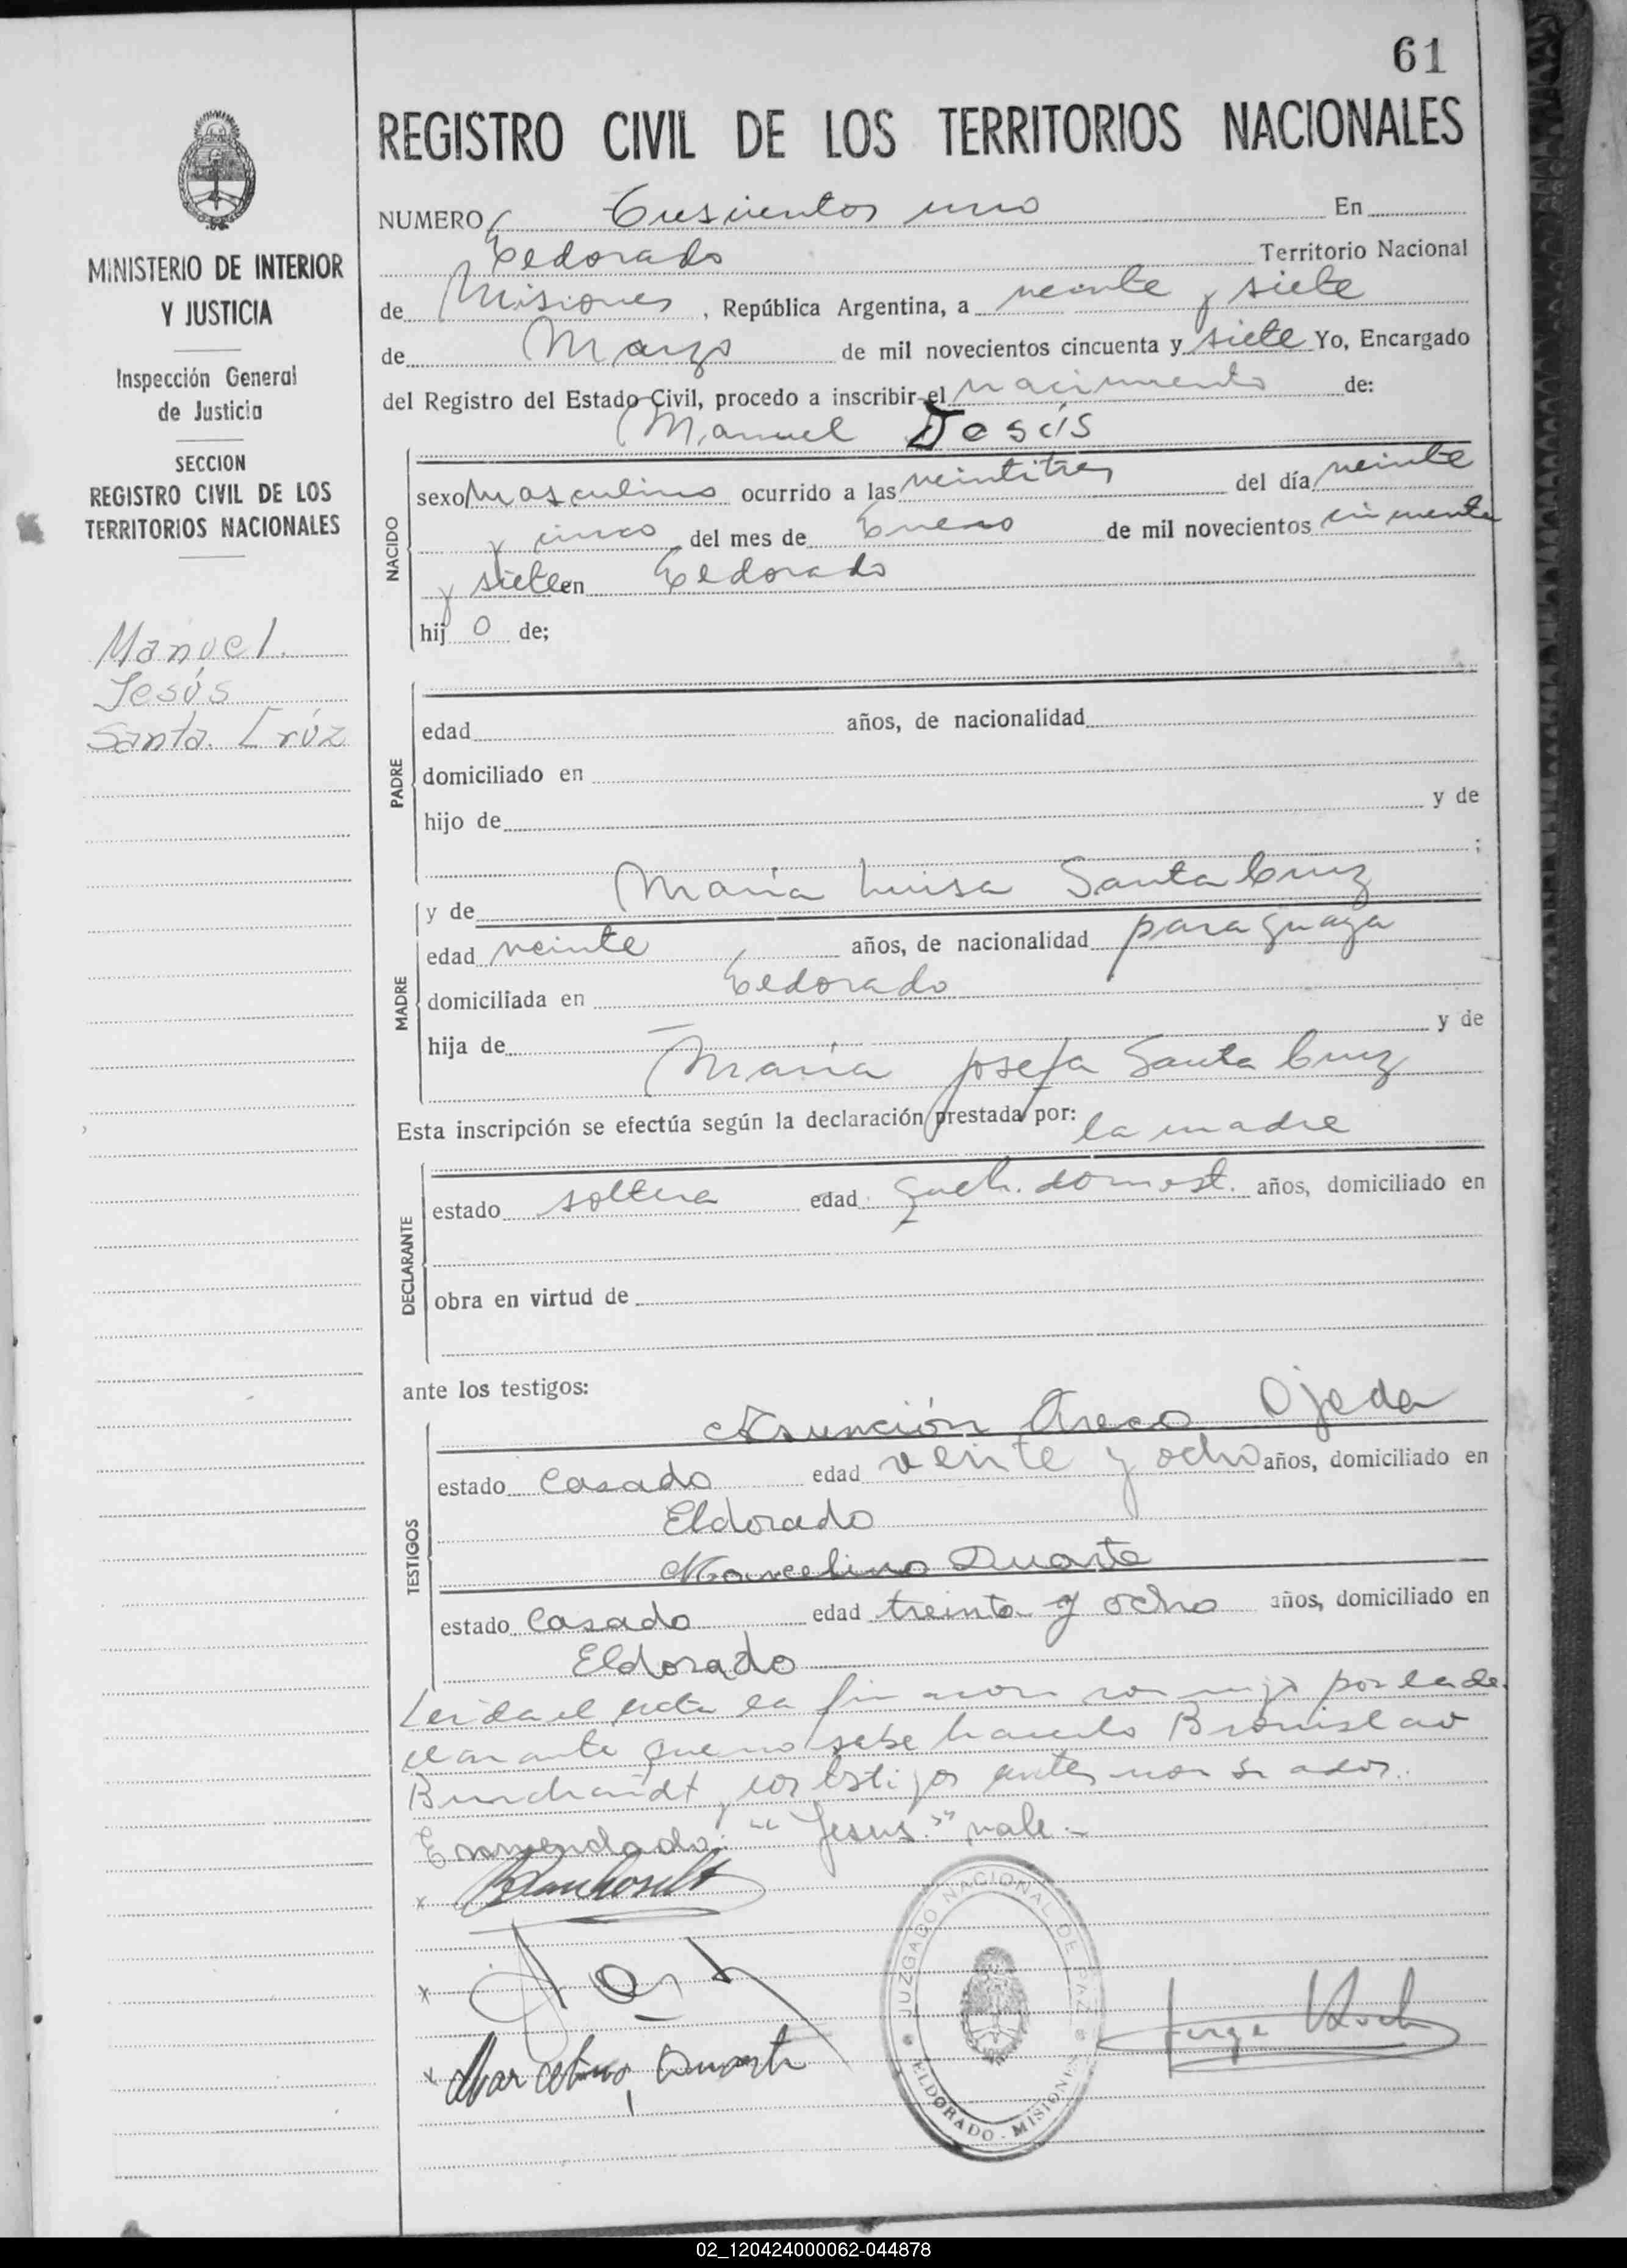 61
REGISTRO CIVIL DE LOS TERRITORIOS NACIONALES
MINISTERIO DE INTERIOR
Y JUSTICIA
Inspección General
de Justicia
SECCION
REGISTRO CIVIL DE LOS
TERRITORIOS NACIONALES
Manuel
Jesús
Santa Crúz
NUMERO Trescientos uno En
Eldorado Territorio Nacional
de Misiones, República Argentina, a veinte y siete
de Marzo de mil novecientos cincuenta y siete Yo, Encargado
del Registro del Estado Civil, procedo a inscribir el nacimiento de:
Manuel Jesús
NACIDO
sexo Masculino ocurrido a las veintitres del día veinte
y cinco del mes de Enero de mil novecientos cincuenta
y siete en Eldorado
hij o de;
PADRE
edad años, de nacionalidad
domiciliado en
hijo de y de
;
MADRE
y de María Luisa Santa Cruz
edad veinte años, de nacionalidad paraguaya
domiciliada en Eldorado
hija de — y de
María Josefa Santa Cruz
Esta inscripción se efectúa según la declaración prestada por: la madre
DECLARANTE
estado soltera edad queh. domest. años, domiciliado en
obra en virtud de
ante los testigos:
TESTIGOS
Asunción Areco Ojeda
estado Casado edad veinte y ocho años, domiciliado en
Eldorado
Marcelino Duarte
estado Casado edad treinta y ocho años, domiciliado en
Eldorado
Leida el acta la firmaron conmigo por la de
clarante que no sabe hacerlo Bronislao
Burchardt, los testigos antes mencionados.
Enmendado: "Jesus." vale.-
x
x
x Marcelino Duarte
JUZGADO NACIONAL DE PAZ
ELDORADO - MISIONES
Jorge
02_120424000062-044878